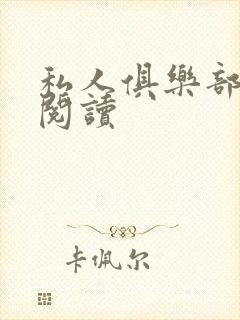 私人俱樂部
閱讀
卡佩尔